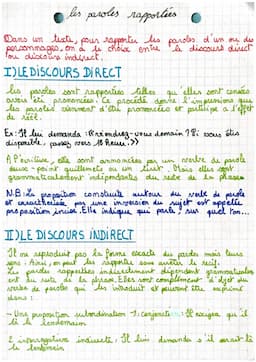 les paroles rapportées
Dans un texte, pour rapporter les paroles d'un ou des
personnages, on a le choix entre le discours direct
ou discours indirect.
I) LE DISCOURS DIRECT
Les paroles sont rapportées telles qu'elles sont censées
avoir été prononcées. Ce procédé donne l'impression que
les paroles viennent d'être prononcées et participe à l'effet
de réel.
Ex: Il lui demanda : « Viendrez-vous demain ? Si vous êtes
disponible, passez vers 10 heures. »
A l'écriture, elle sont annoncées par un verbe de parole
deux-points guillemets ou un tiret. Mais elles sont
grammaticalement indépendantes du reste de la phrase
N.B: La proposition construite autour du verbe de parole
et caractérisée par une inversion du sujet est appelée
proposition incise. Elle indique qui parle, sur quel ton...
II) LE DISCOURS INDIRECT
Il ne reproduit pas la forme exacte des paroles mais leurs
sens. Ainsi, on peut les rapporter sans arrêter le récit.
Les paroles rapportées indirectement dépendent grammaticalement
du reste de la phrase. Elles sont complément d'objet du
verbe de paroles qui les introduit et peuvent être exprimé
dans :
- Une proposition subordination 1. conjonctive: Il
le lendemain
2 interrogative indirecte: Il lui demanda s'il
le lendemain